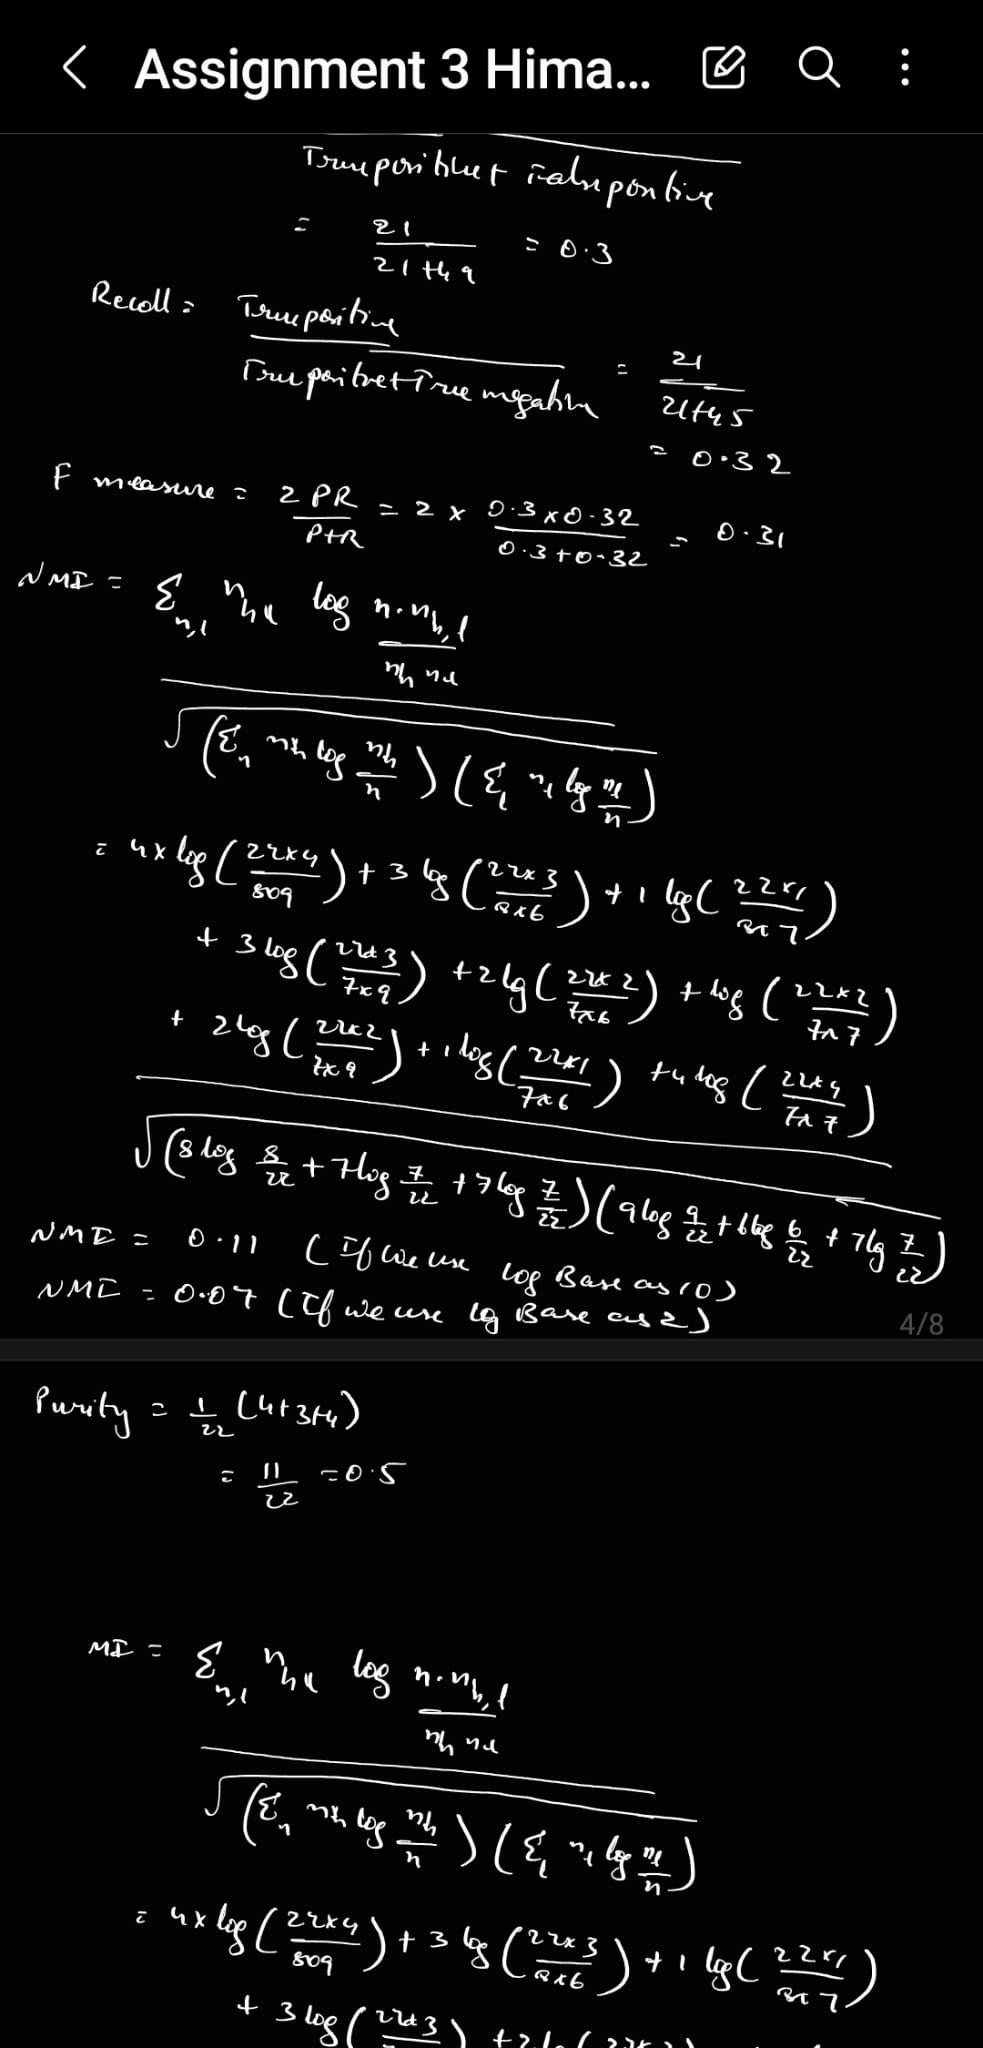 Assignment 3 Hima...
True positive + False positive
= 21 / 21+49 = 0.3
Recall = True positive / True positive + True negative = 21 / 21+45
= 0.32
F measure = 2PR / P+R = 2 x 0.3x0.32 / 0.3+0.32 = 0.31
NMI = Σ n,l n h,l log n.n h,l / nh nl
√ (Σ n nh log nh / n) (Σ l nl log nl / n)
= 4x log (22x4 / 8x9) + 3 log (22x3 / 8x6) + 1 log (22x1 / 8x7)
+ 3 log (22x3 / 7x9) + 2 lg (22x2 / 7x6) + log (22x2 / 7x7)
+ 2 log (22x2 / 7x9) + 1 log (22x1 / 7x6) + 4 log (22x4 / 7x7)
√ (8 log 8/22 + 7 log 7/22 + 7 log 7/22) (9 log 9/22 + 6 log 6/22 + 7 lg 7/22)
NMI = 0.11 (If we use log Base as 10)
NMI = 0.07 (If we use lg Base as 2)
4/8
Purity = 1/22 (4+3+4)
= 11/22 = 0.5
MI = Σ n,l n h,l log n.n h,l / nh nl
√ (Σ n nh log nh / n) (Σ l nl log nl / n)
= 4x log (22x4 / 8x9) + 3 log (22x3 / 8x6) + 1 lg (22x1 / 8x7)
+ 3 log (22x3